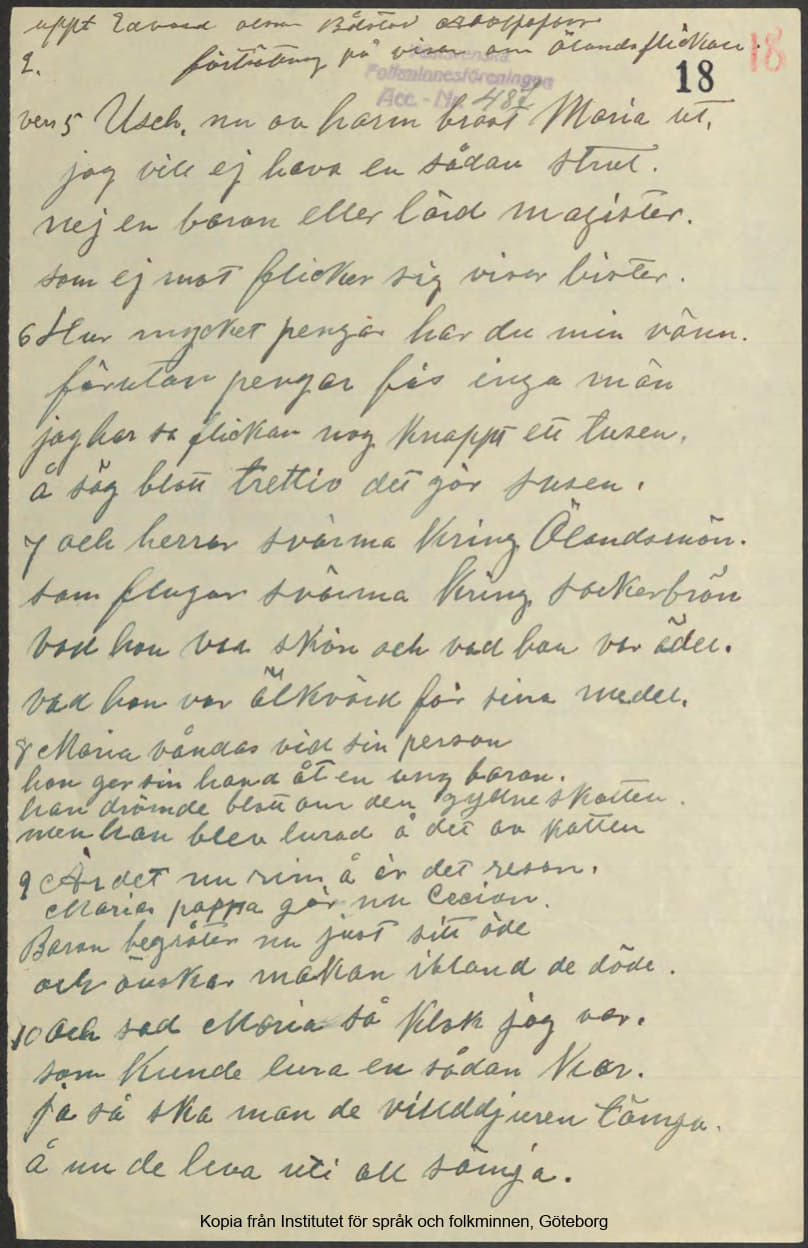 uppt Edvard olsson Båstad
2. fortsättning på visan om ölandsflickan.
Folkminnesföreningen
Acc. - Nr 487
18 18
vers 5 Usch, nu av harm brast Maria ut,
jag vill ej hava en sådan strut.
nej en baron eller lärd magister.
som ej mot flickor sig visar bister.
6 Hur mycket pengar har du min vänn.
förutan pengar fås inga män
jag har sa flickan nog knappt ett tusen.
å säg blott trettio det gör susen.
7 och herrar svärma kring Ölandsmön.
som flugar svärma kring sockerbrön
vad hon var skön och vad hon var ädel.
vad hon var älkvärd för sina medel.
8 Maria våndas vid sin person
hon ger sin hand åt en ung baron.
han drömde blott om den gyllne skatten.
men han blev lurad å det av katten
9 Är det nu rim å är det reson.
Marias pappa gör nu Cecion.
Baron begråter nu just sitt öde
och önskar makan ibland de döde.
10 Och sad Maria så klok jag var.
som kunde lura en sådan kar.
ja så ska man de villddjuren tämja.
å nu de leva uti all sämja.
Kopia från Institutet för språk och folkminnen, Göteborg